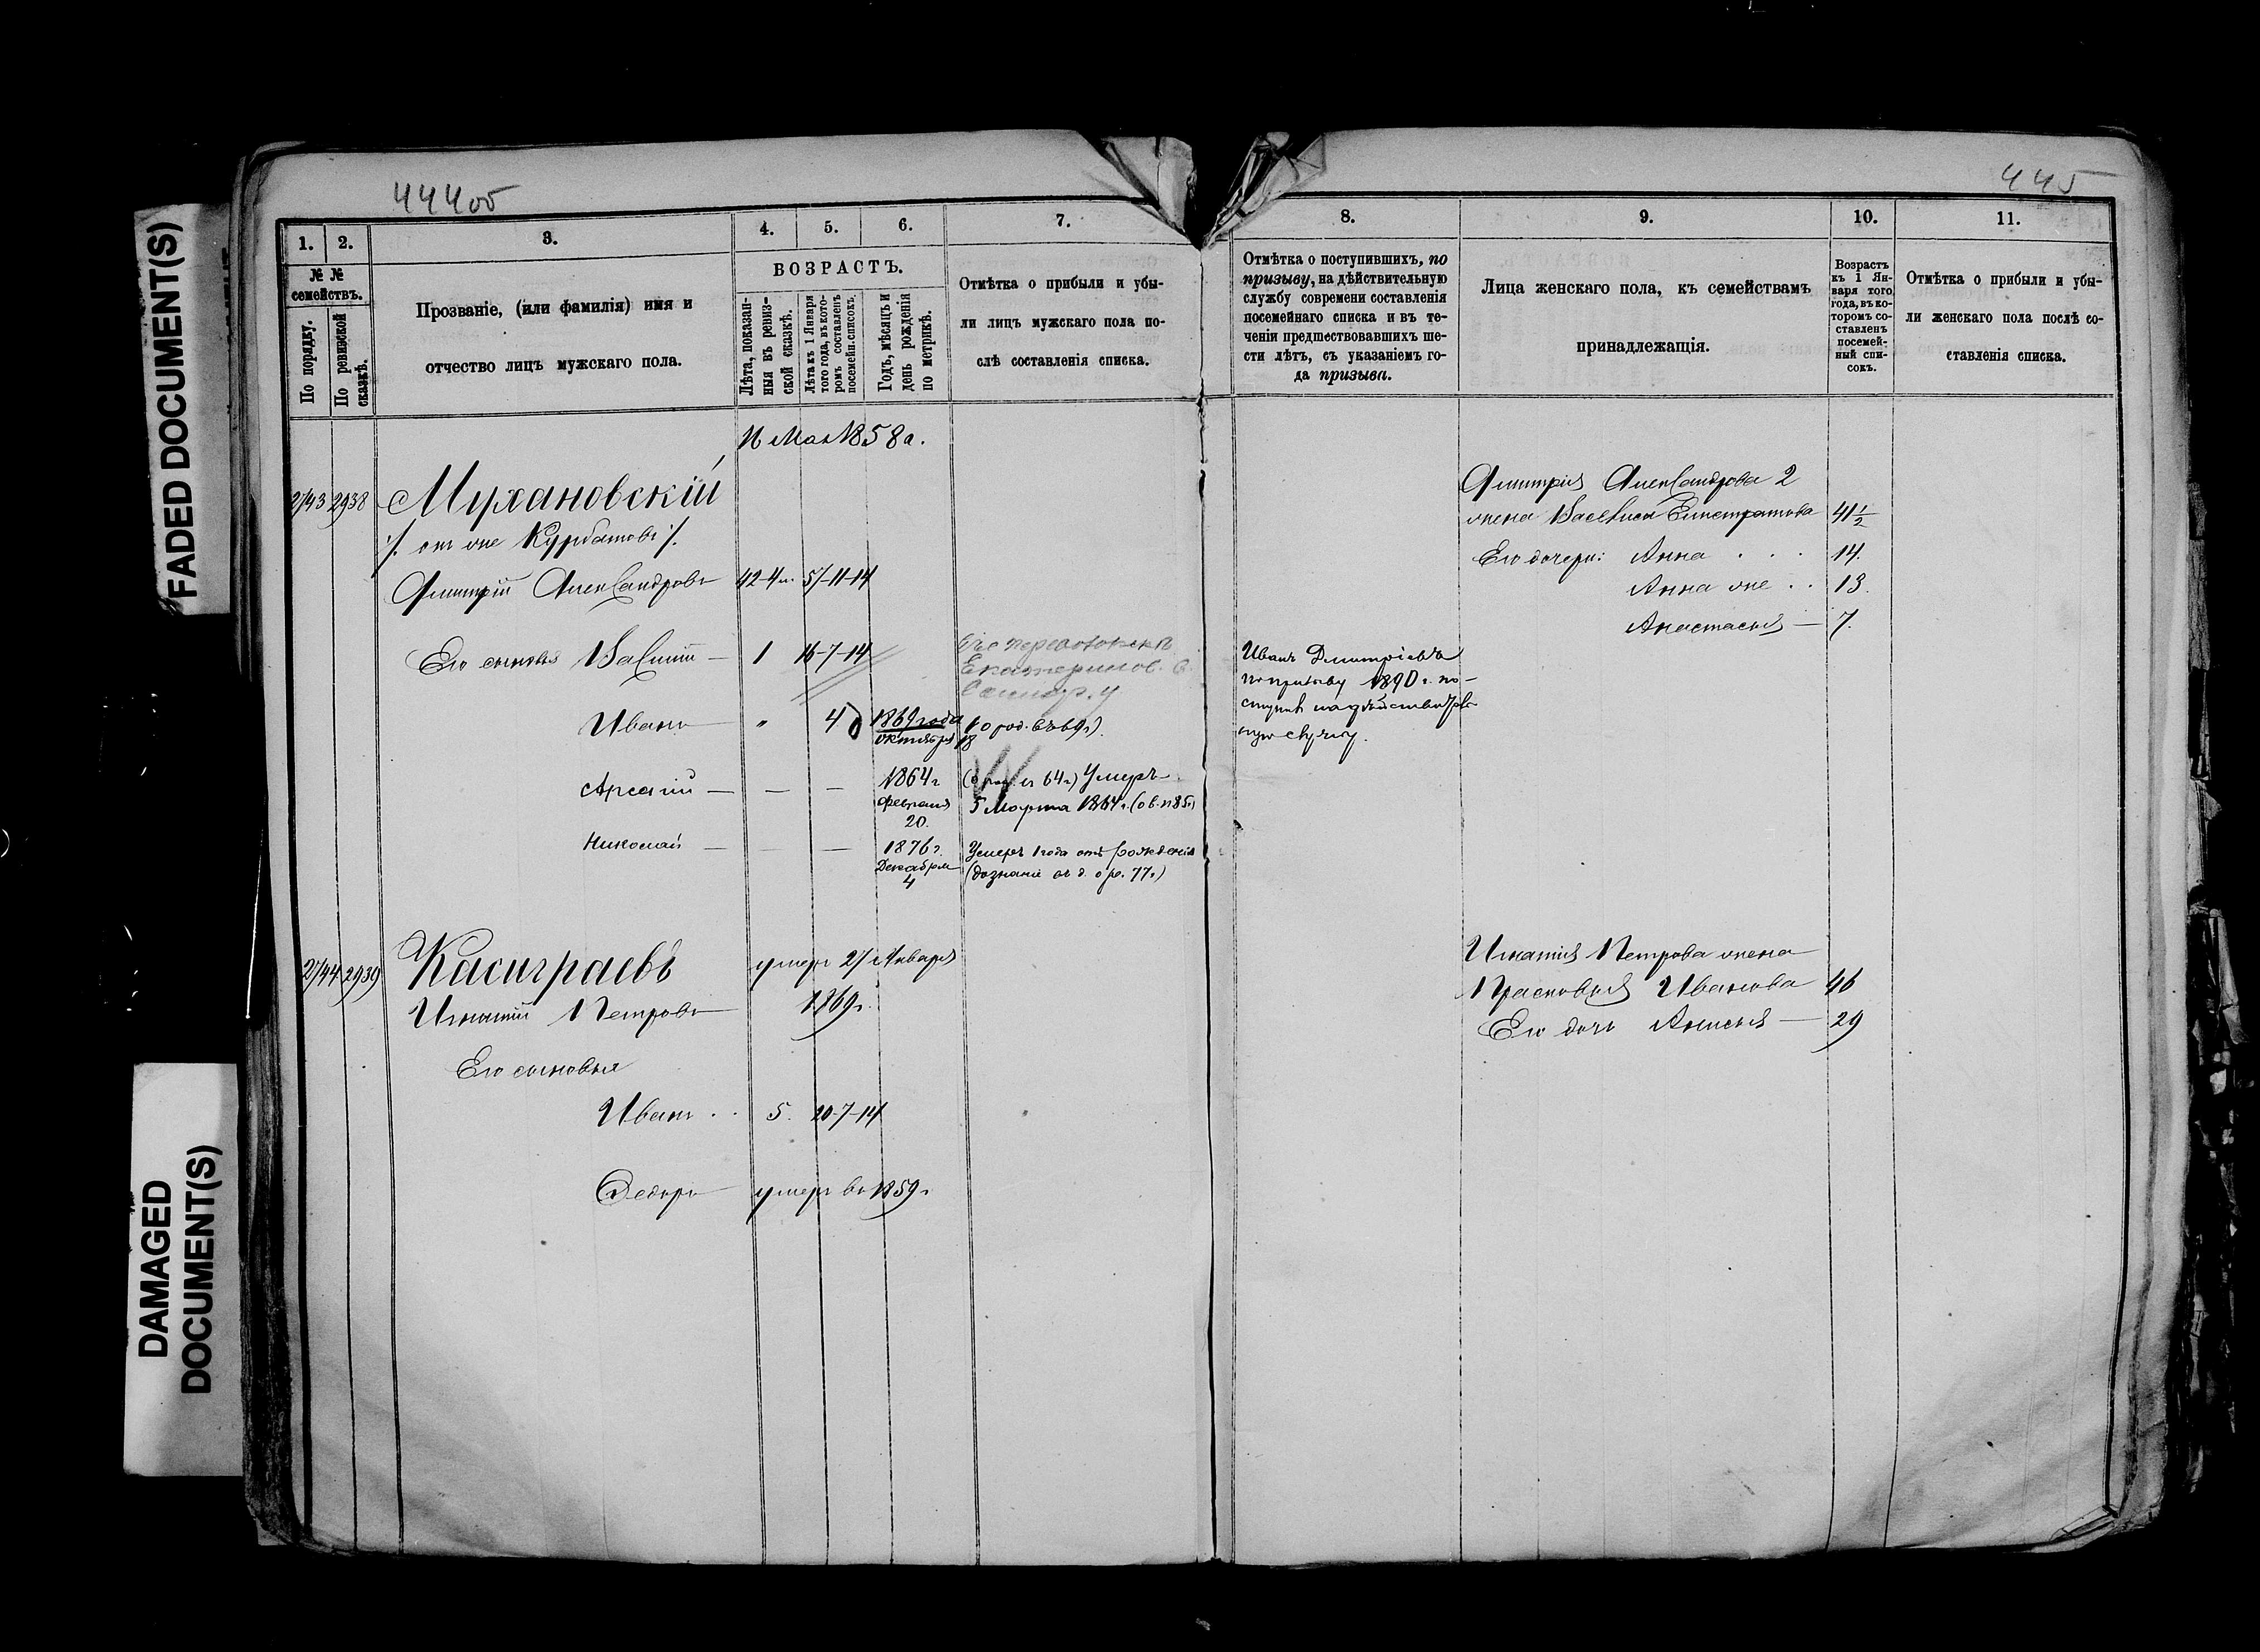 FADED DOCUMENT(S)
DAMAGED
DOCUMENT(S)
444об
445
1.
2.
3.
4.
5.
6.
7.
№ №
семействъ.
По порядку.
По ревизской
сказкѣ.
Прозваніе, (или фамилія) имя и
отчество лицъ мужскаго пола.
ВОЗРАСТЪ.
Лѣта, показан-
ныя въ ревиз-
ской сказкѣ.
Лѣта къ 1 Января
того года, въ кото-
ромъ составленъ
посемейн. списокъ.
Годъ, мѣсяцъ и
день рожденія
по метрикѣ.
Отмѣтка о прибыли и убы-
ли лицъ мужскаго пола по-
слѣ составленія списка.
16 Мая 1858 г.
2743 2938 Мухановскій
/. онъ же Курбатовъ /.
Дмитрій Александровъ 42-4м. 57-11-14
Его сыновья 1 16-7-14
Екатеринов.
Иванъ " 4 1869 года (о род. въ 69 г.)
октября 18
Арсеній — — — 1864 г. (о род. въ 64 г.) Умеръ
февраля 5 Марта 1864 г.
20.
Николай — — — 1876 г. Умеръ 1 года отъ рожденія
Декабря (дознаніе
4
2744 2939 Касиграевъ умеръ 27 Января
Игнатій Петровъ 1869 г.
Его сыновья
Иванъ . . 5. 20-7-14
Федоръ умеръ въ 1859 г.
8.
9.
10.
11.
Отмѣтка о поступившихъ, по
призыву, на дѣйствительную
службу современи составленія
посемейнаго списка и въ те-
ченіи предшествовавшихъ ше-
сти лѣтъ, съ указаніемъ го-
да призыва.
Лица женскаго пола, къ семействамъ
принадлежащія.
Возрастъ
къ 1 Ян-
варя того
года, въ ко-
торомъ со-
ставленъ
посемей-
ный спи-
сокъ.
Отмѣтка о прибыли и убы-
ли женскаго пола послѣ со-
ставленія списка.
Дмитрія Александрова 2
жена Василиса Елистратова 41½
Его дочери: Анна . . . 14.
Анна же . . 13.
Анастасія — 7.
Иванъ Дмитріевъ
по призыву 1890 г. по-
ступилъ на дѣйствитель
ную службу.
Игнатія Петрова жена
Прасковья Иванова 46
Его дочь Анисья — 29